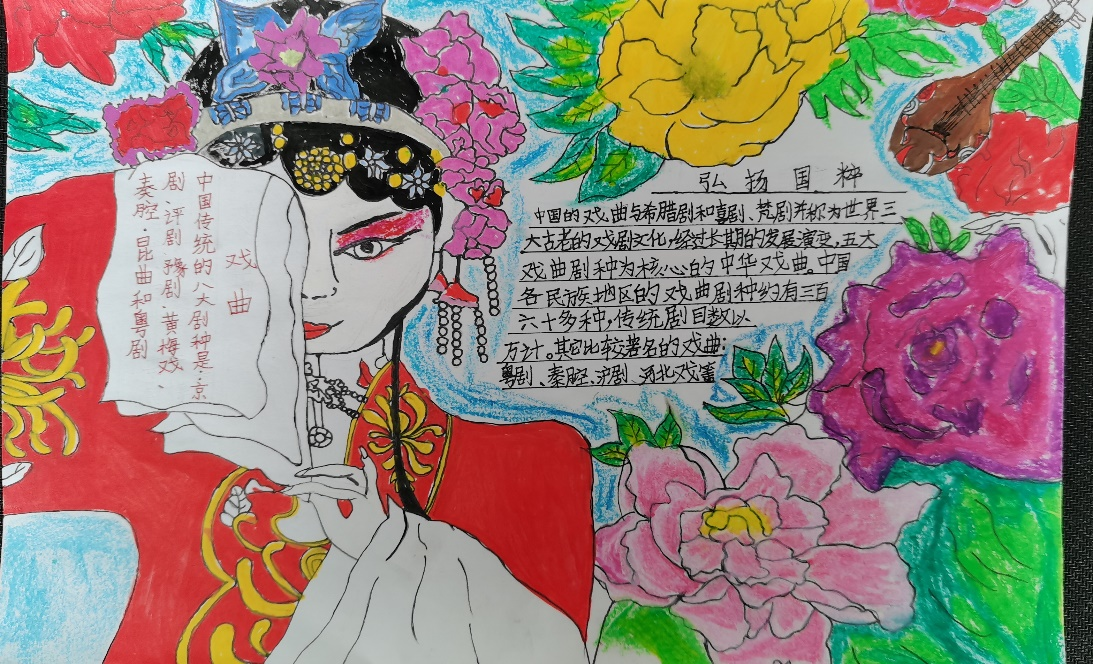 戏曲
中国传统的八大剧种是:京
剧、评剧、豫剧、黄梅戏、
秦腔、昆曲和粤剧
弘扬国粹
中国的戏曲与希腊剧和喜剧、梵剧并称为世界三
大古老的戏剧文化,经过长期的发展演变,五大
戏曲剧种为核心的中华戏曲。中国
各民族地区的戏曲剧种约有三百
六十多种,传统剧目数以
万计。其它比较著名的戏曲:
粤剧、秦腔、沪剧、河北戏